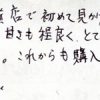 店で初めて見か
甘さも程良く、とて
。これからも購入